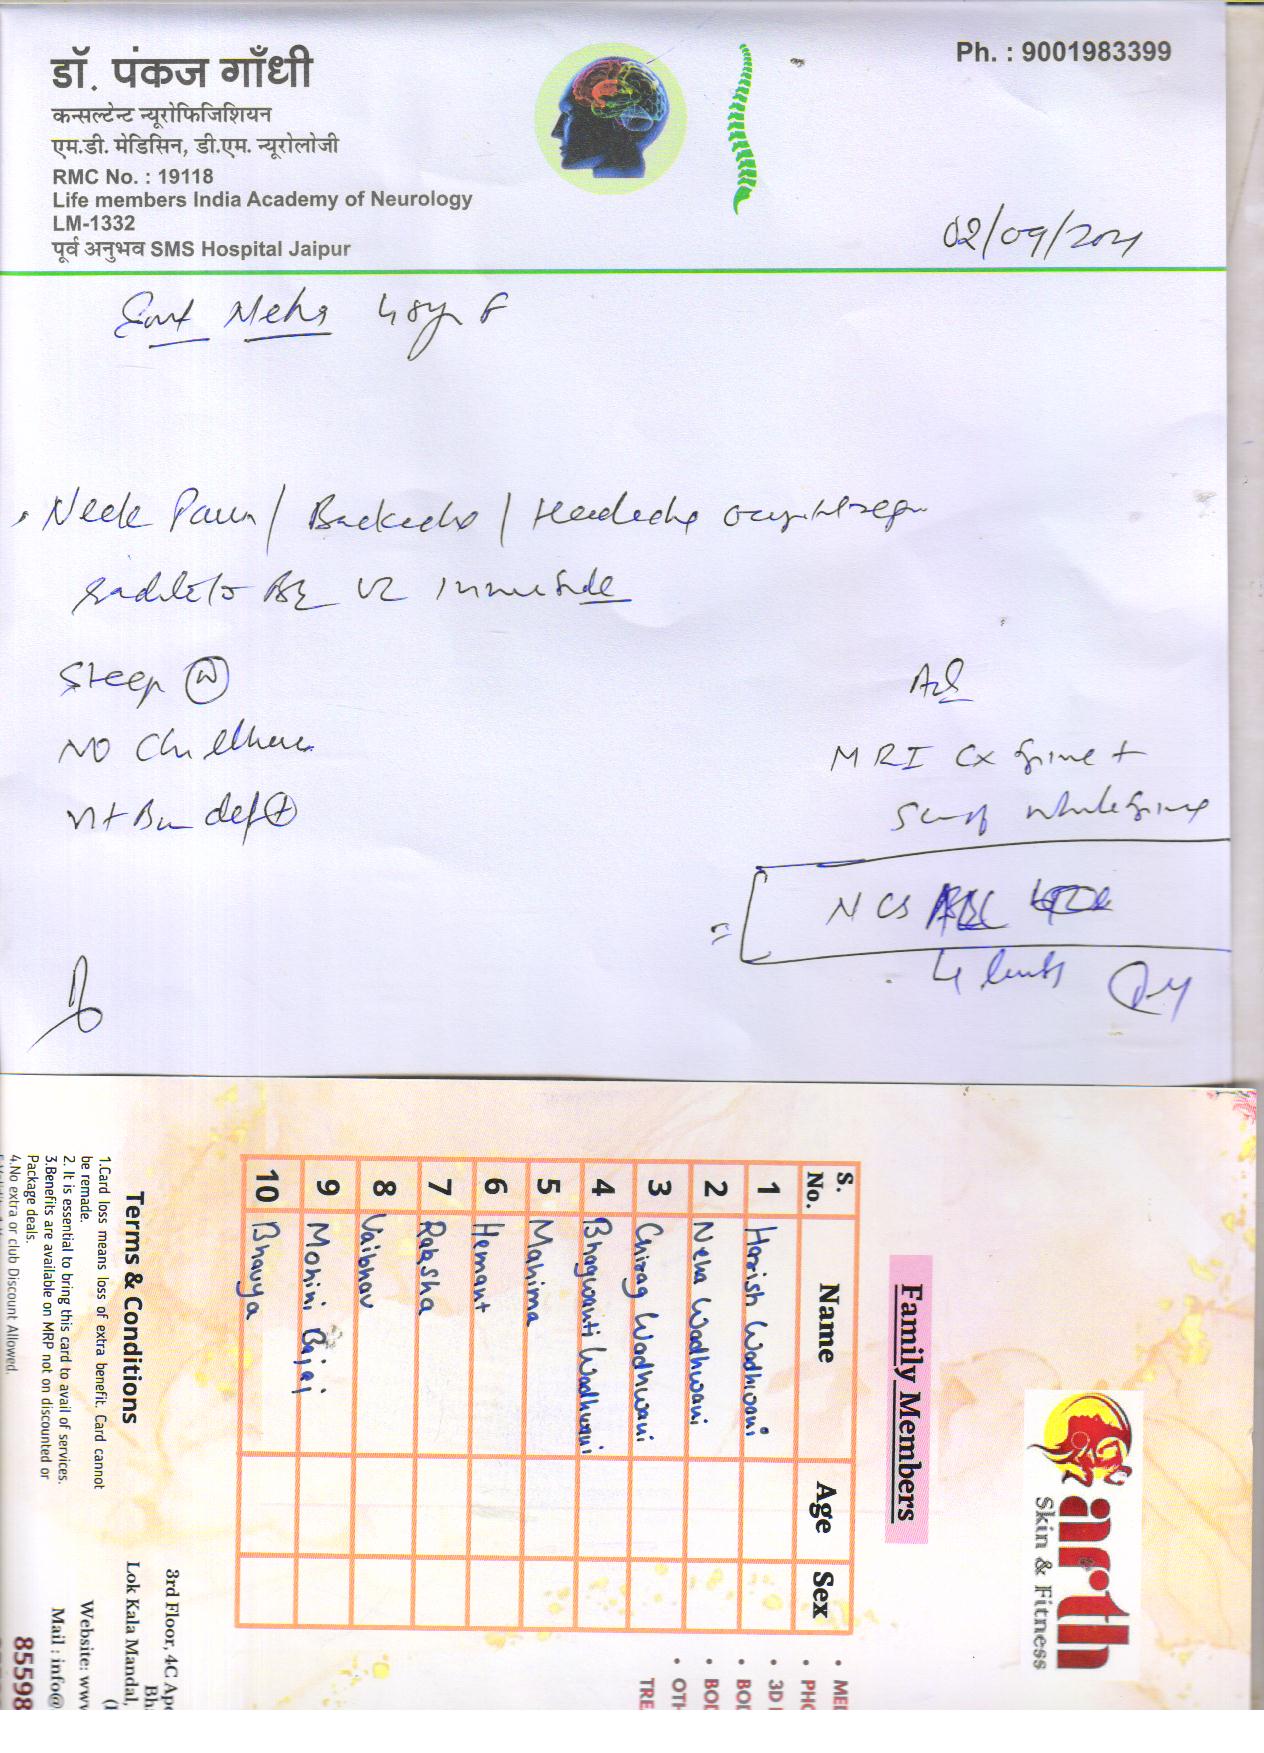 डॉ. पंकज गाँधी
कन्सल्टेन्ट न्यूरोफिजिशियन
एम.डी. मेडिसिन, डी.एम. न्यूरोलोजी
RMC No. : 19118
Life members India Academy of Neurology
LM-1332
पूर्व अनुभव SMS Hospital Jaipur
Ph. : 9001983399
02/09/2021
Smt Neha 48yr F
Neck Pain / Backache / Headache
Sleep N
NO
def +
Adv
MRI Cx Spine +
whole spine
NCS
4 limbs
arth
Skin & Fitness
Family Members
S. No. Name Age Sex
1 Harish Wadhwani
2 Neha Wadhwani
3 Chirag Wadhwani
4 Bhagwanti Wadhwani
5 Mahima
6 Hemant
7 Raksha
8 Vaibhav
9 Mohini Bajaj
10 Bhavya
Terms & Conditions
1.Card loss means loss of extra benefit. Card cannot
be remade.
2. It is essential to bring this card to avail of services.
3.Benefits are available on MRP not on discounted or
Package deals.
4.No extra or club Discount Allowed.
3rd Floor, 4C Ap
Bh
Lok Kala Mandal,
Website: www
Mail : info@
85598
• ME
• PHO
• 3D
• BO
• BOD
• OTH
TRE